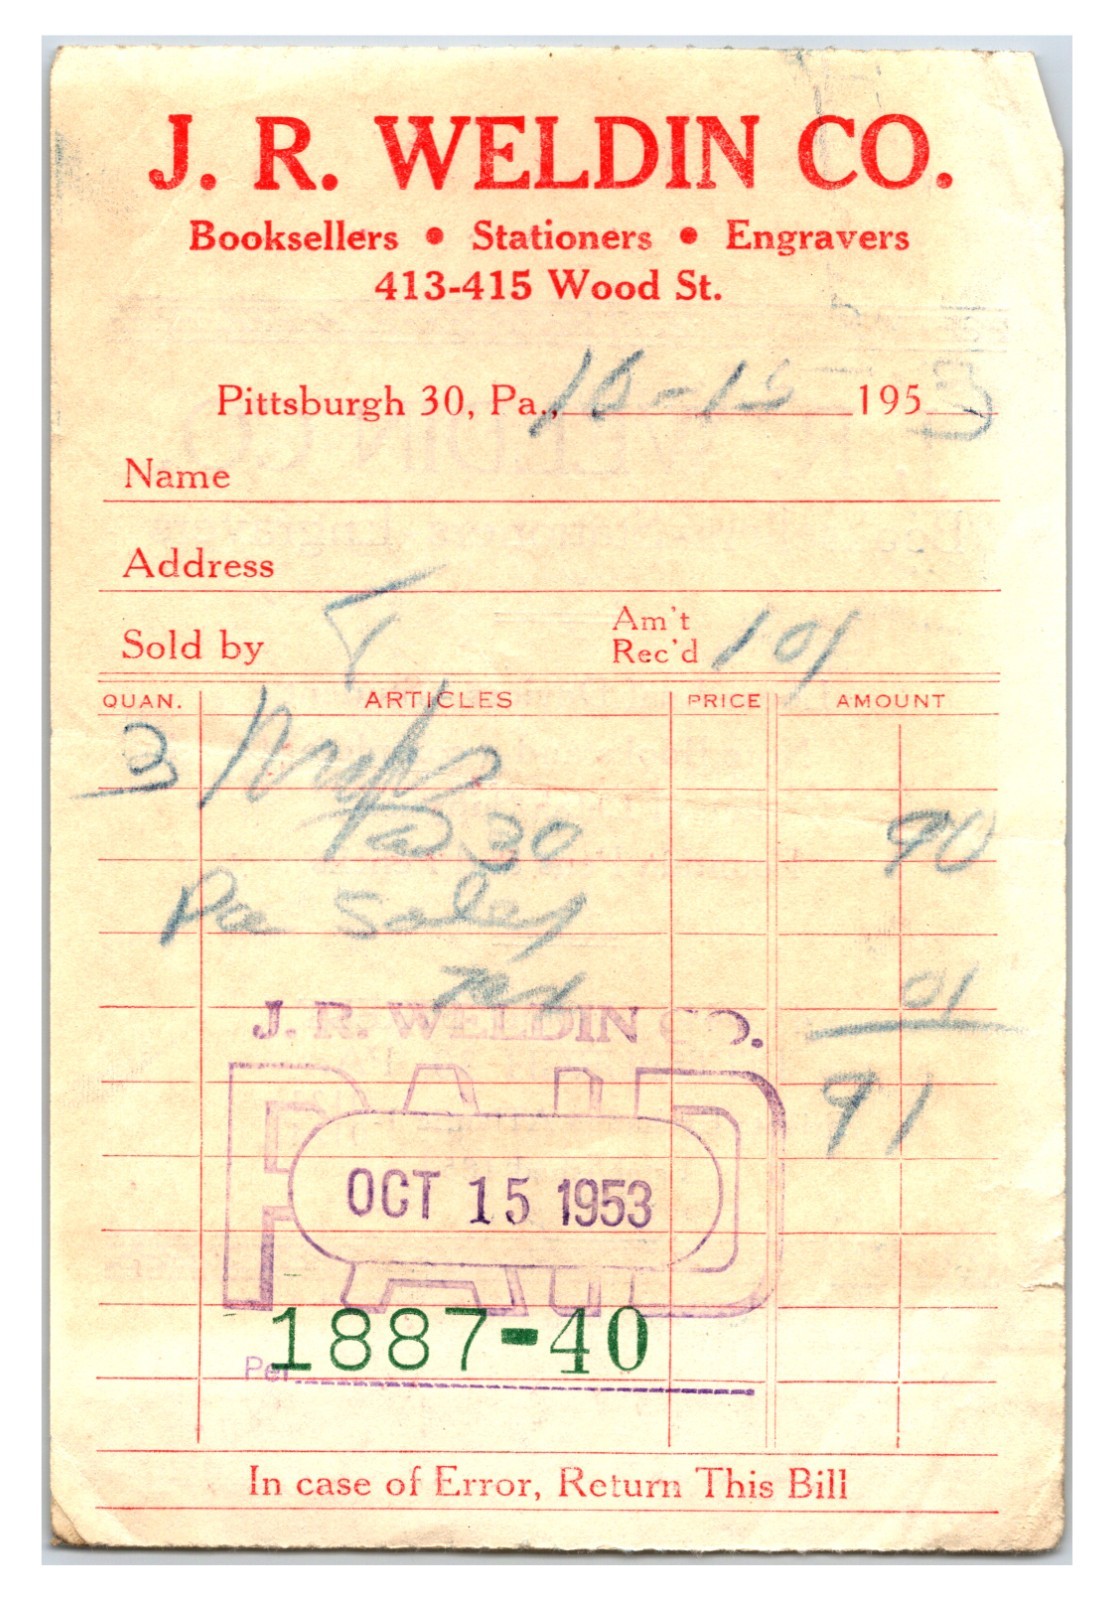 J. R. WELDIN CO.
Booksellers • Stationers • Engravers
413-415 Wood St.
Pittsburgh 30, Pa., 10-15 1953
Name
Address
Sold by
Am't Rec'd 101
QUAN. ARTICLES PRICE AMOUNT
3
@ 30 90
Pa Sales
Tax 01
91
J. R. WELDIN CO.
PAID
OCT 15 1953
1887-40
Per
In case of Error, Return This Bill